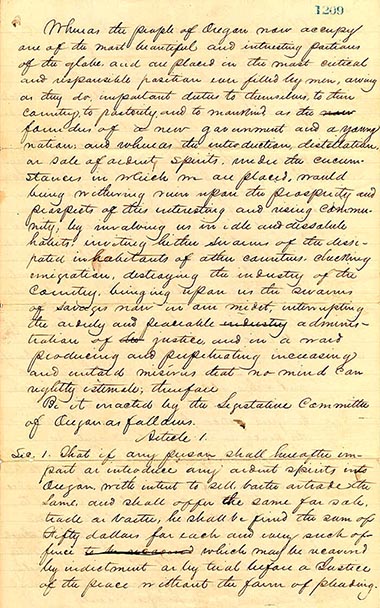 1209
Whereas the people of Oregon now occupy
one of the most beautiful and interesting portions
of the globe, and are placed in the most critical
and responsible position ever filled by men, owing
as they do, important duties to themselves, to their
country, to posterity, and to mankind as the now
founders of a new government and a young
nation; and whereas the introduction, distillation,
or sale of ardent spirits, under the circum-
stances in which we are placed, would
bring withering ruin upon the prosperity and
prospects of this interesting and rising commu-
nity, by involving us in idle and dissolute
habits, inviting hither swarms of the dissi-
pated inhabitants of other countries, checking
emigration, destroying the industry of the
country, bringing upon us the swarms
of savages now in our midst, interrupting
the orderly and peaceable industry adminis-
tration of the justice, and in a word
producing and perpetuating increasing
and untold miseries that no mind can
rightly estimate; therefore
Be it enacted by the Legislative Committee
of Oregon as follows.
Article 1.
Sec. 1. That if any person shall hereafter im-
port or introduce any ardent spirits into
Oregon, with intent to sell, barter or trade the
same, and shall offer the same for sale,
trade or barter, he shall be fined the sum of
Fifty dollars for each and every such of-
fence to be recovered which may be recovered
by indictment or by trial before a Justice
of the peace without the form of pleading.